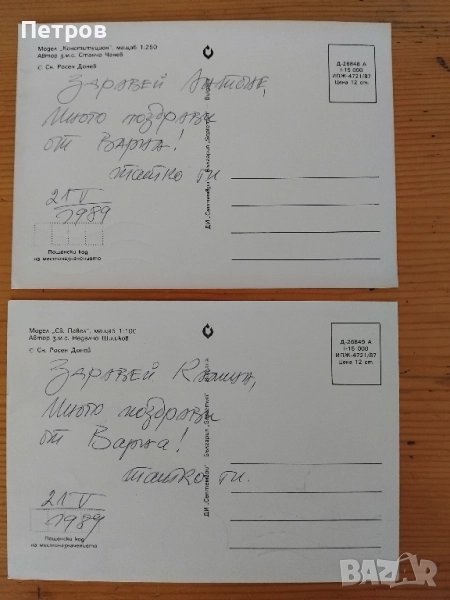 Петров
Модел „Конституция", мащаб 1:250
Автор з.м.с. Станчо Чанев
© Сн. Росен Донев
Д-26848 А
I-15 000
ИПЖ-4721/87
Цена 12 ст.
Здравей Антоне,
Много поздрави
от Варна!
татко ти
21 V
1989
Пощенски код
на местоназначението
ДИ „Септември", България
Модел „Св. Павел", мащаб 1:100
Автор з.м.с. Неделчо Шишков
© Сн. Росен Донев
Д-26845 А
I-15 000
ИПЖ-4721/87
Цена 12 ст.
Здравей
Много поздрави
от Варна!
татко ти.
21 V
1989
Пощенски код
на местоназначението
ДИ „Септември", България
BAZAR